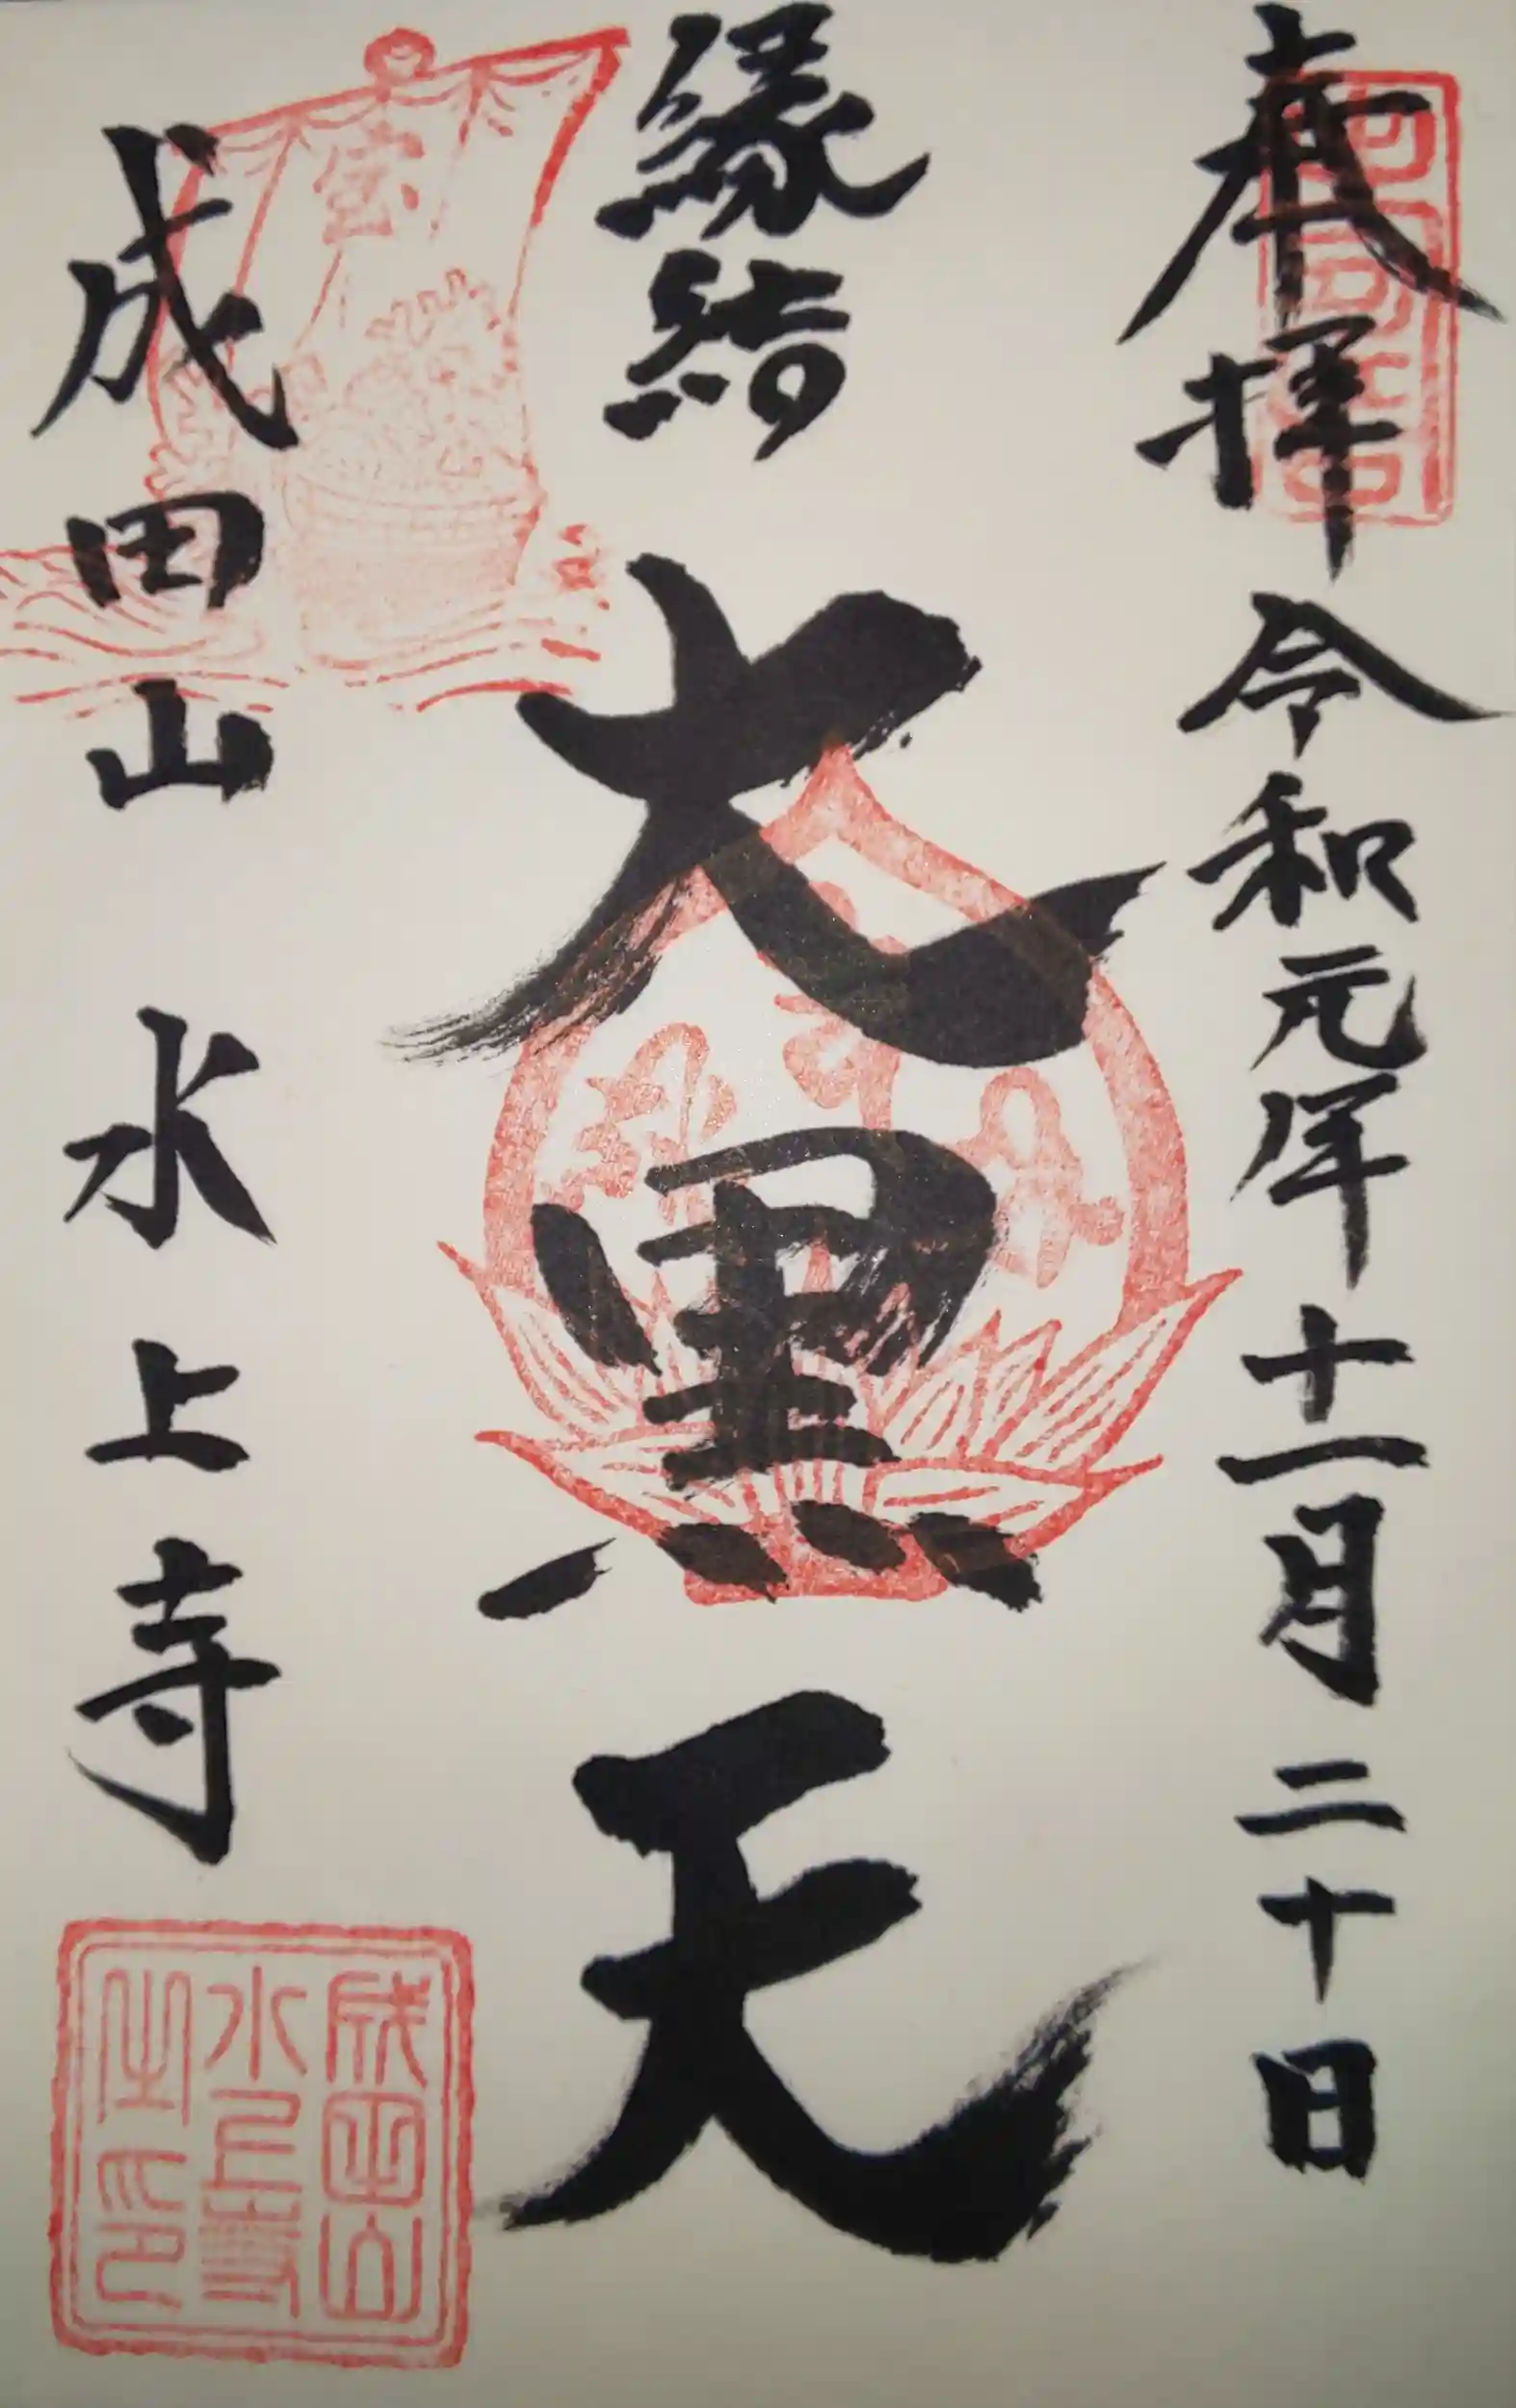 奉拝 令和元年十一月二十日
縁結
大黒天
成田山 水上寺
宝
成田山
水上寺
之印